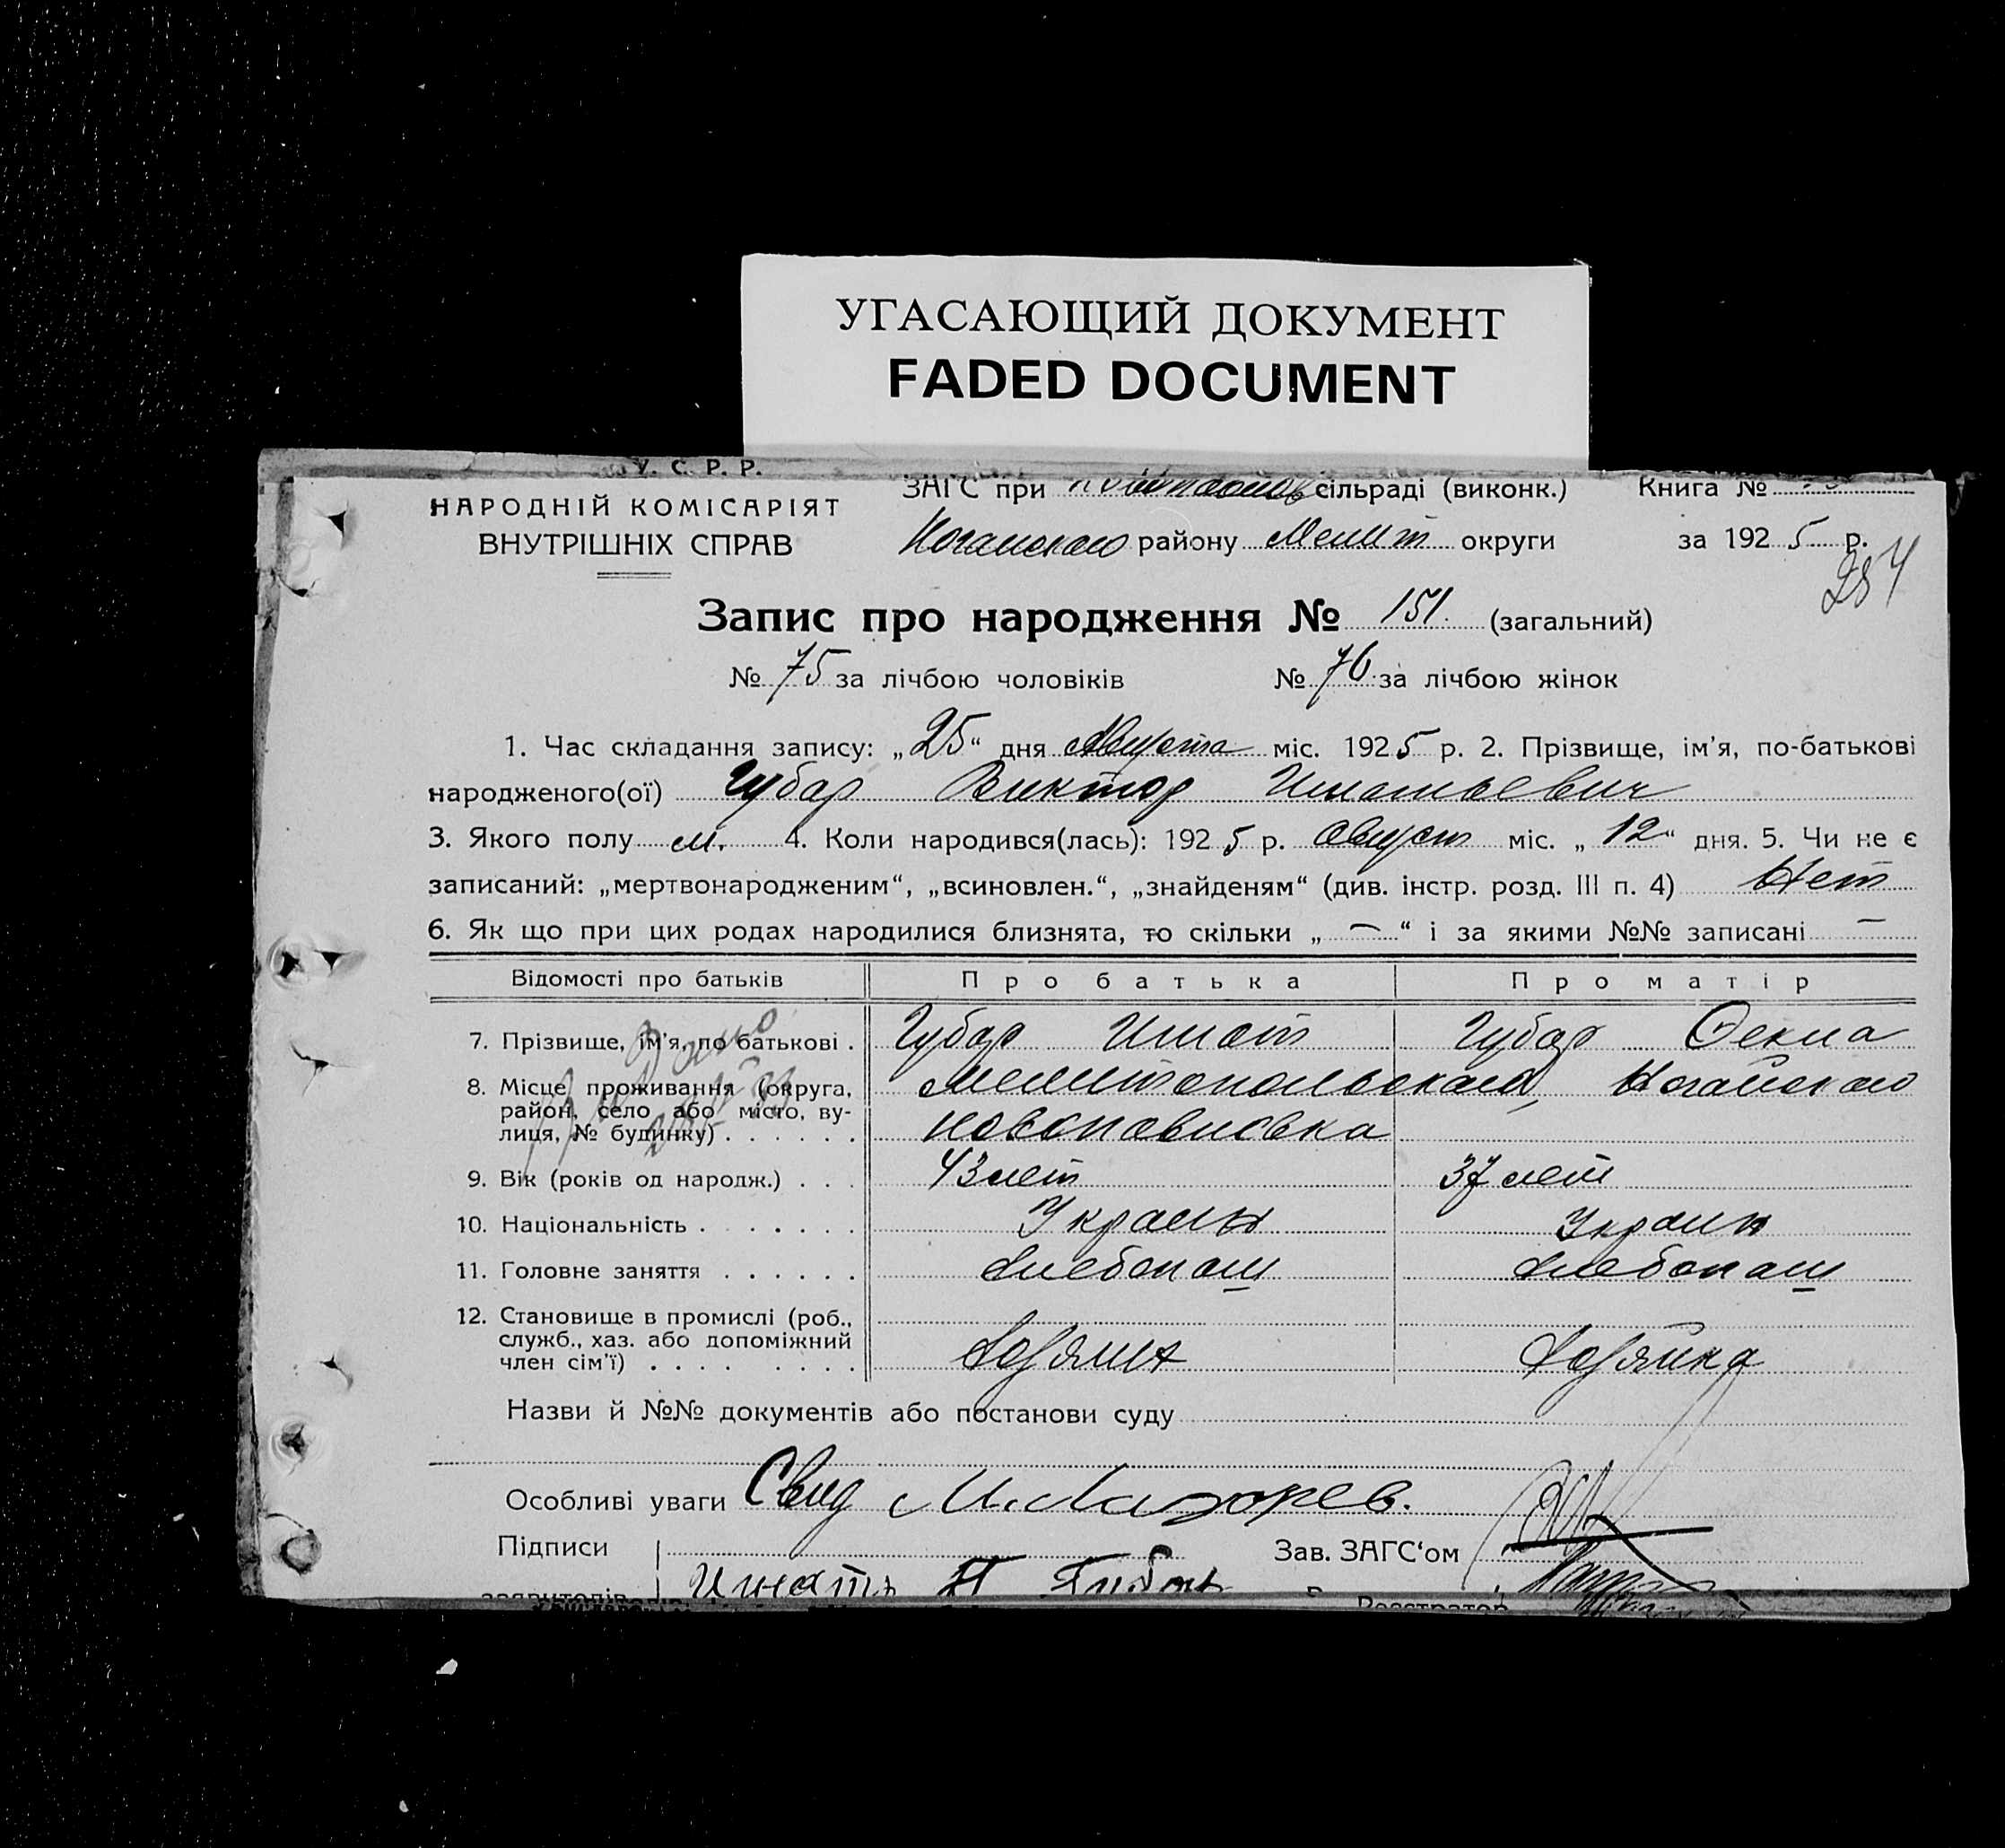 УГАСАЮЩИЙ ДОКУМЕНТ
FADED DOCUMENT
У. С. Р. Р.
НАРОДНІЙ КОМІСАРІЯТ
ВНУТРІШНІХ СПРАВ
ЗАГС при сільраді (виконк.)
Книга №
Ногайского району Мелит округи
за 1925 р.
254
Запис про народження № 151. (загальний)
№ 75 за лічбою чоловіків № 76 за лічбою жінок
1. Час складання запису: „25“ дня Августа міс. 1925 р. 2. Прізвище, ім’я, по-батькові
народженого(ої) Губар Виктор Игнатьевич
3. Якого полу м. 4. Коли народився(лась): 1925 р. Август міс. „12“ дня. 5. Чи не є
записаний: „мертвонародженим“, „всиновлен.“, „знайденям“ (див. інстр. розд. III п. 4) Нет
6. Як що при цих родах народилися близнята, то скільки „—“ і за якими №№ записані —
Відомості про батьків Про батька Про матір
7. Прізвище, ім’я, по батькові . Губар Игнат Губар Фекла
8. Місце проживання (округа, район, село або місто, ву-
лиця, № будинку) . . . . . . Мелитопольского, Ногайского
Новопавловка
9. Вік (років од народж.) . . . 43 лет 37 лет
10. Національність . . . . . . . Украин Украин
11. Головне заняття . . . . . . Хлебопаш Хлебопаш
12. Становище в промислі (роб.,
служб., хаз. або допоміжний
член сім’ї) . . . . . . . . Хозяин Хозяйка
Назви й №№ документів або постанови суду
Особливі уваги Свид
Підписи
Зав. ЗАГС‘ом
заявителів
Игнатъ
Реєстратор